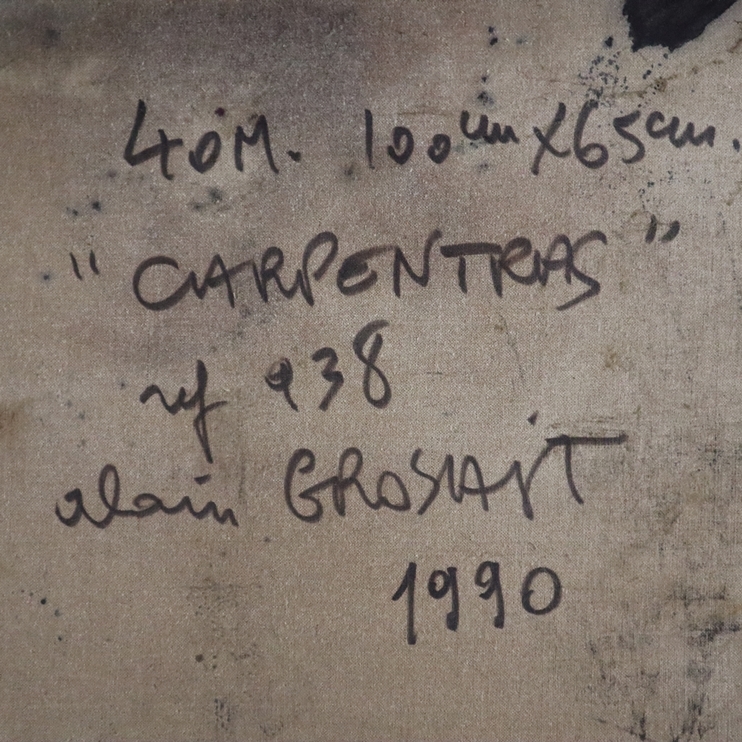 40M. 100cm x 65cm.
"CARPENTRAS"
ref 938
alain GROSAJT
1990